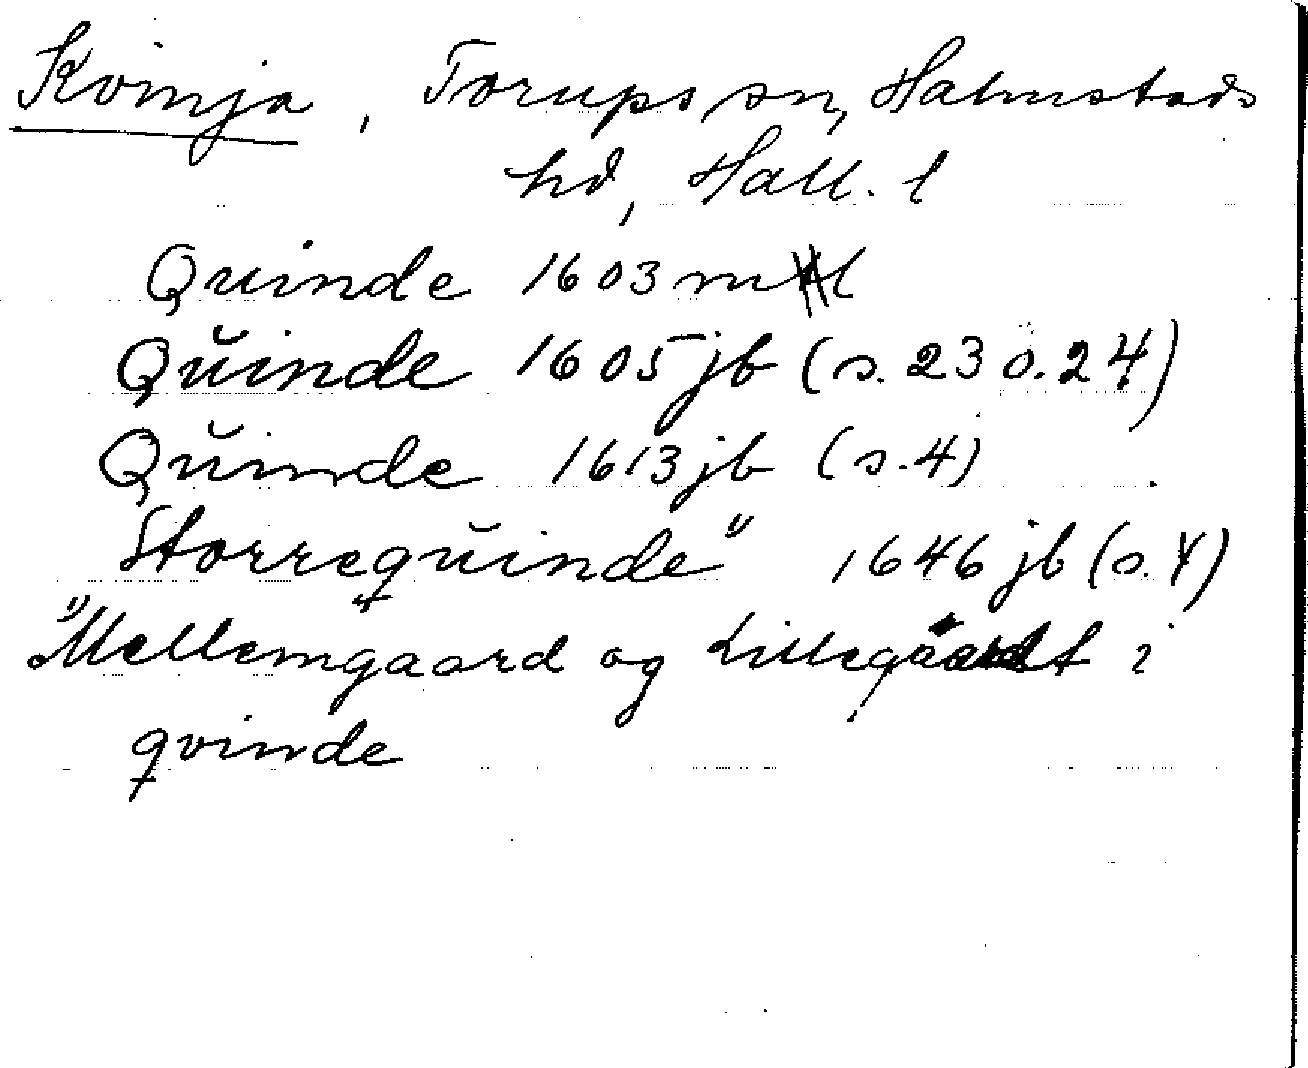 Kvinja, Torups sn, Halmstads
hd, Hall. l
Quinde 1603 ml
Qŭinde 1605 jb (s. 23 o. 24)
Qŭinde 1613 jb (s. 4)
Storreqŭinde" 1646 jb (s. 4)
"Mellemgaard og Lillegaardt i
qvinde